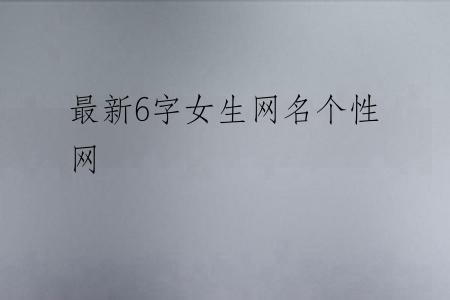 最新6字女生网名个性
网